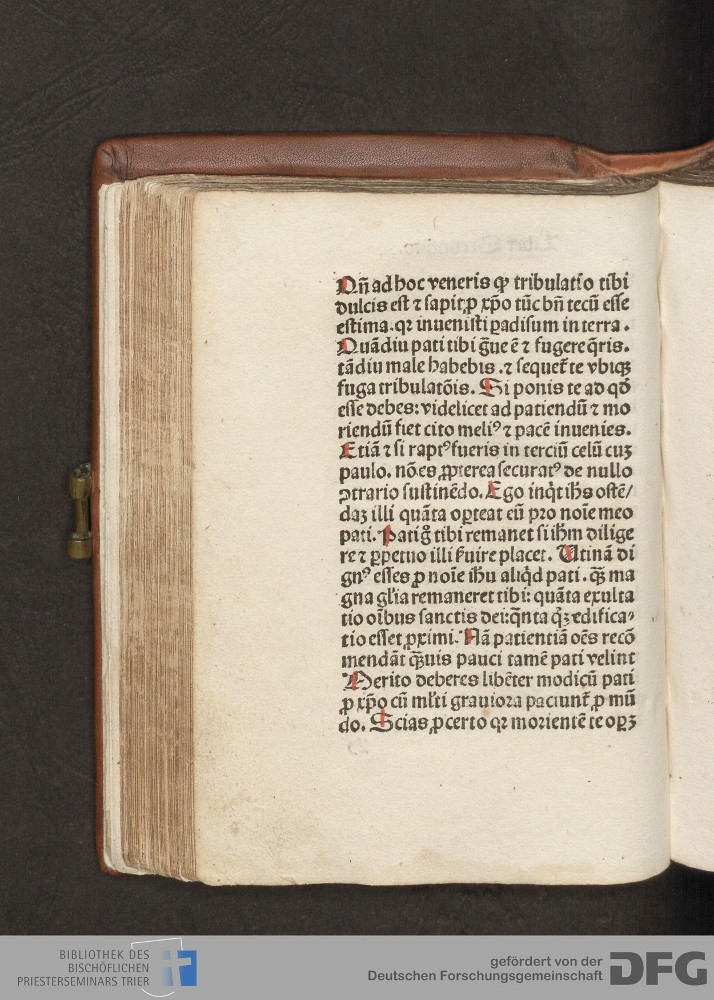 Qñ ad hoc veneris ꝙ tribulatio tibi
dulcis est ⁊ sapit ꝓ xp̄o tūc bñ tecū esse
estima. qꝛ inuenisti ꝑadisum in terra.
Quādiu pati tibi g̃ue ē ⁊ fugere q̄ris.
tādiu male habebis. ⁊ sequet̄ te vbiqꝫ
fuga tribulatōis. Si ponis te ad qđ
esse debes: videlicet ad patiendū ⁊ mo
riendū fiet cito meliꝰ ⁊ pacē inuenies.
Etiā ⁊ si raptꝰ fueris in terciū celū cuꝫ
paulo. nō es ꝓpterea securatꝰ de nullo
ꝯtrario sustinēdo. Ego inq̇t ihs ostē/
daꝫ illi quāta oꝑteat eū pro noīe meo
pati. Pati g̊ tibi remanet si ihm̄ dilige
re ⁊ ꝑpetuo illi ẜuire placet. Utinā di
gnꝰ esses ꝓ noīe ihu aliq̇d pati. q̄ꝫ ma
gna gl̄ia remaneret tibi: quāta exulta
tio oībus sanctis dei: q̄nta q̊ꝫ edifica⸗
tio esset ꝓximi. Nā patientiā oēs recō
mendāt q̄ꝫuis pauci tamē pati velint
Merito deberes libēter modicū pati
ꝓ xp̄o cū ml̄ti grauiora paciunt̄ ꝓ mū
do. Scias ꝓ certo qꝛ morientē te oꝑꝫ
BIBLIOTHEK DES
BISCHÖFLICHEN
PRIESTERSEMINARS TRIER
gefördert von der
Deutschen Forschungsgemeinschaft DFG